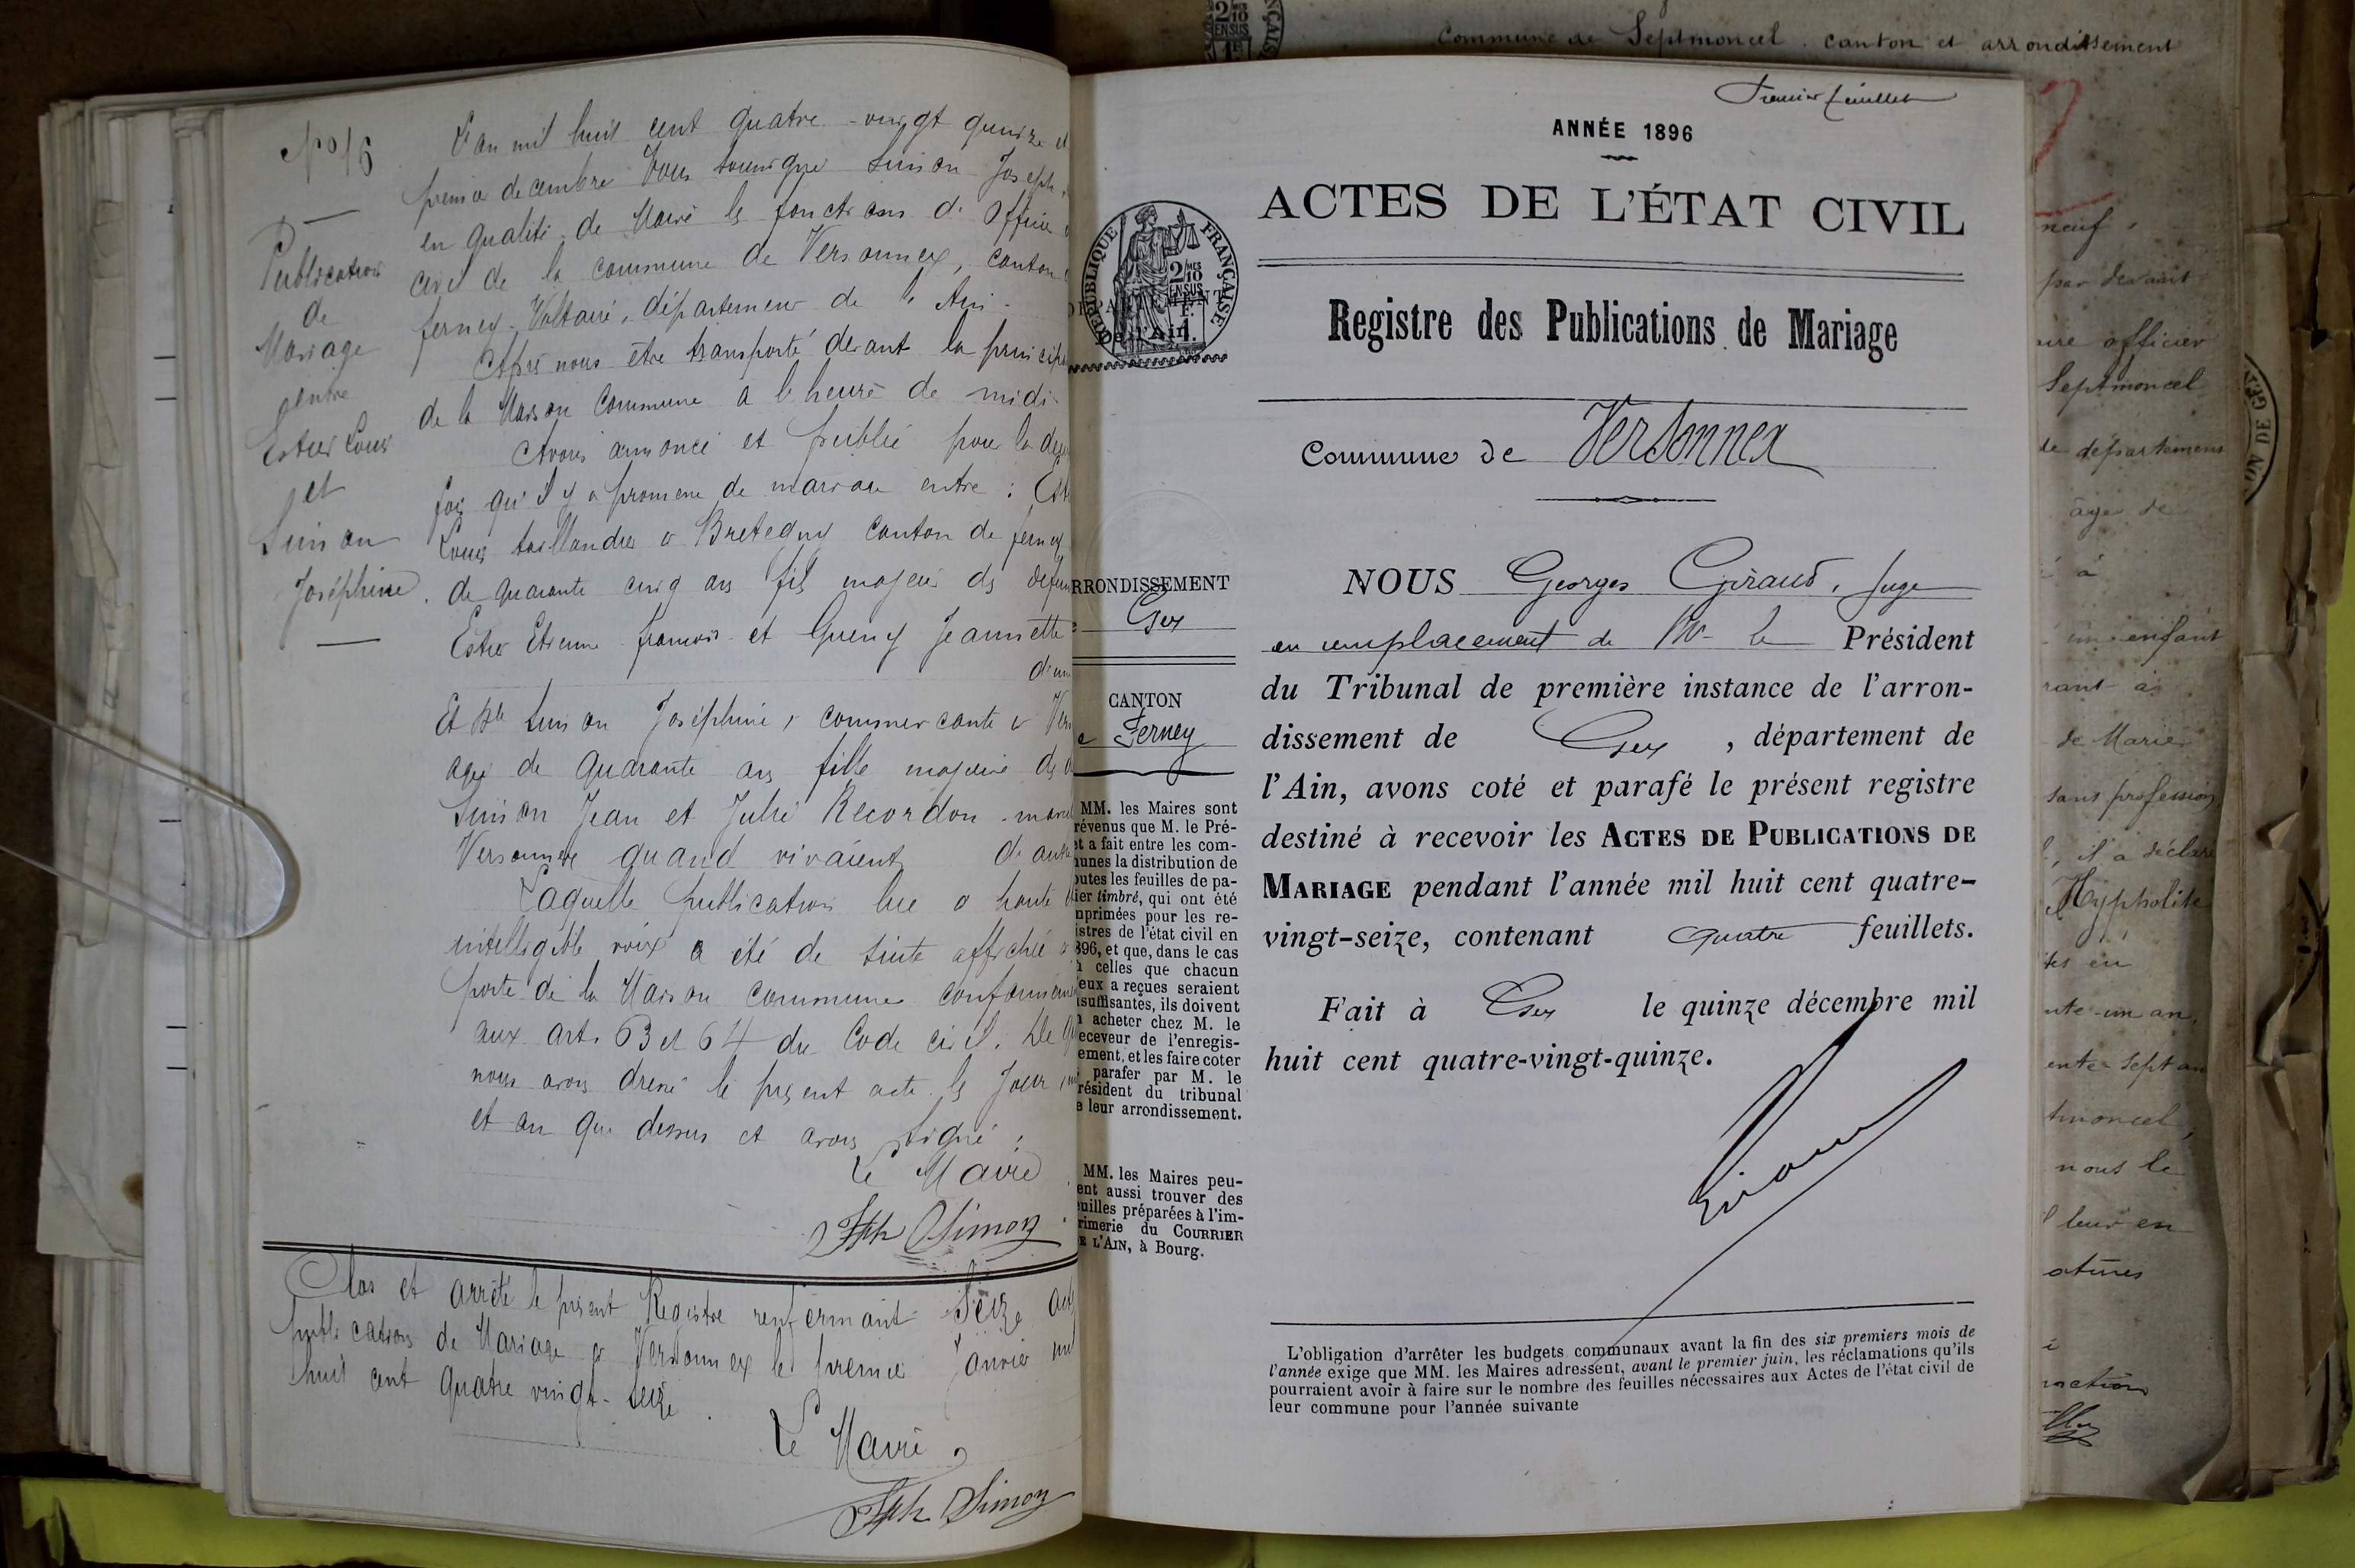 No 16
Publication
de
Mariage
entre
Estier Louis
et
Simon
Joséphine
L'an mil huit cent quatre-vingt quinze et
premier decembre Nous soussigné Simon Joseph
en qualité de Maire les fonctions d'Officier
civil de la commune de Versonnex, canton
ferney-Voltaire, département de l'Ain.
Après nous être transporté devant la principale
de la Maison Commune a l'heure de midi
Avons annoncé et publié pour la
fois qu'il y a promesse de mariage entre :
Louis taillandier a Bretegny canton de ferney
de quarante cinq ans fils majeur des
Estier Etienne françois et Jeannette
d'une
Et Dlle Simon Joséphine, commercante a
agée de quarante ans fille majeure des
Simon Jean et Julie Recordon
Versonnex quand vivaient d'autre
Laquelle publication lue a haute
intelligible voix a été de suite affichée
porte de la Maison commune
aux art. 63 et 64 du Code civil. De
nous avons dressé le present acte les jour
et an que dessus et avons signé :
Le Maire
Jph Simon
Clos et arrêté le présent Registre renfermant Seize
publications de Mariage a Versonnex le premier Janvier mil
huit cent quatre vingt-seize.
Le Maire,
Jph Simon
Commune de Septmoncel. canton et arrondissement
Premier feuillet
ANNÉE 1896
ACTES DE L'ÉTAT CIVIL
RÉPUBLIQUE FRANÇAISE
Registre des Publications de Mariage
Commune de Versonnex
ARRONDISSEMENT
Gex
CANTON
Ferney
MM. les Maires sont
prévenus que M. le Pré-
fet a fait entre les com-
munes la distribution de
toutes les feuilles de pa-
pier timbré, qui ont été
imprimées pour les re-
gistres de l'état civil en
1896, et que, dans le cas
où celles que chacun
d'eux a reçues seraient
insuffisantes, ils doivent
en acheter chez M. le
Receveur de l'enregis-
trement, et les faire coter
et parafer par M. le
Président du tribunal
de leur arrondissement.
MM. les Maires peu-
vent aussi trouver des
feuilles préparées à l'im-
primerie du COURRIER
DE L'AIN, à Bourg.
NOUS Georges Giraud, Juge
en remplacement de Mr le Président
du Tribunal de première instance de l'arron-
dissement de Gex, département de
l'Ain, avons coté et parafé le présent registre
destiné à recevoir les ACTES DE PUBLICATIONS DE
MARIAGE pendant l'année mil huit cent quatre-
vingt-seize, contenant quatre feuillets.
Fait à Gex le quinze décembre mil
huit cent quatre-vingt-quinze.
Giraud
L'obligation d'arrêter les budgets communaux avant la fin des six premiers mois de
l'année exige que MM. les Maires adressent, avant le premier juin, les réclamations qu'ils
pourraient avoir à faire sur le nombre des feuilles nécessaires aux Actes de l'état civil de
leur commune pour l'année suivante
neuf,
par devant
officier
Septmoncel
de département
âgé de
à
un enfant
de Marie
sans profession
, il a déclaré
Hyppolite
nous le
leur en